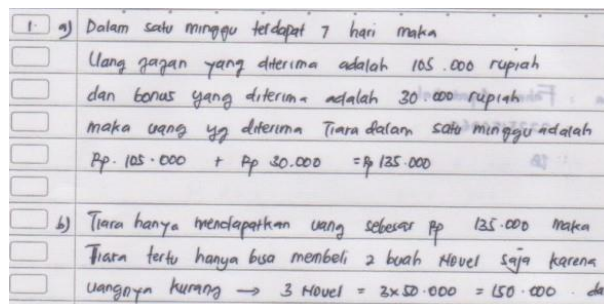 1. a) Dalam satu minggu terdapat 7 hari maka
Uang jajan yang diterima adalah 105.000 rupiah
dan bonus yang diterima adalah 30.000 rupiah
maka uang yg diterima Tiara dalam satu minggu adalah
Rp. 105.000 + Rp 30.000 = Rp 135.000
b) Tiara hanya mendapatkan uang sebesar Rp 135.000 maka
Tiara tertu hanya bisa membeli 2 buah Novel saja karena
uangnya kurang → 3 Novel = 3x50.000 = 150.000 . da